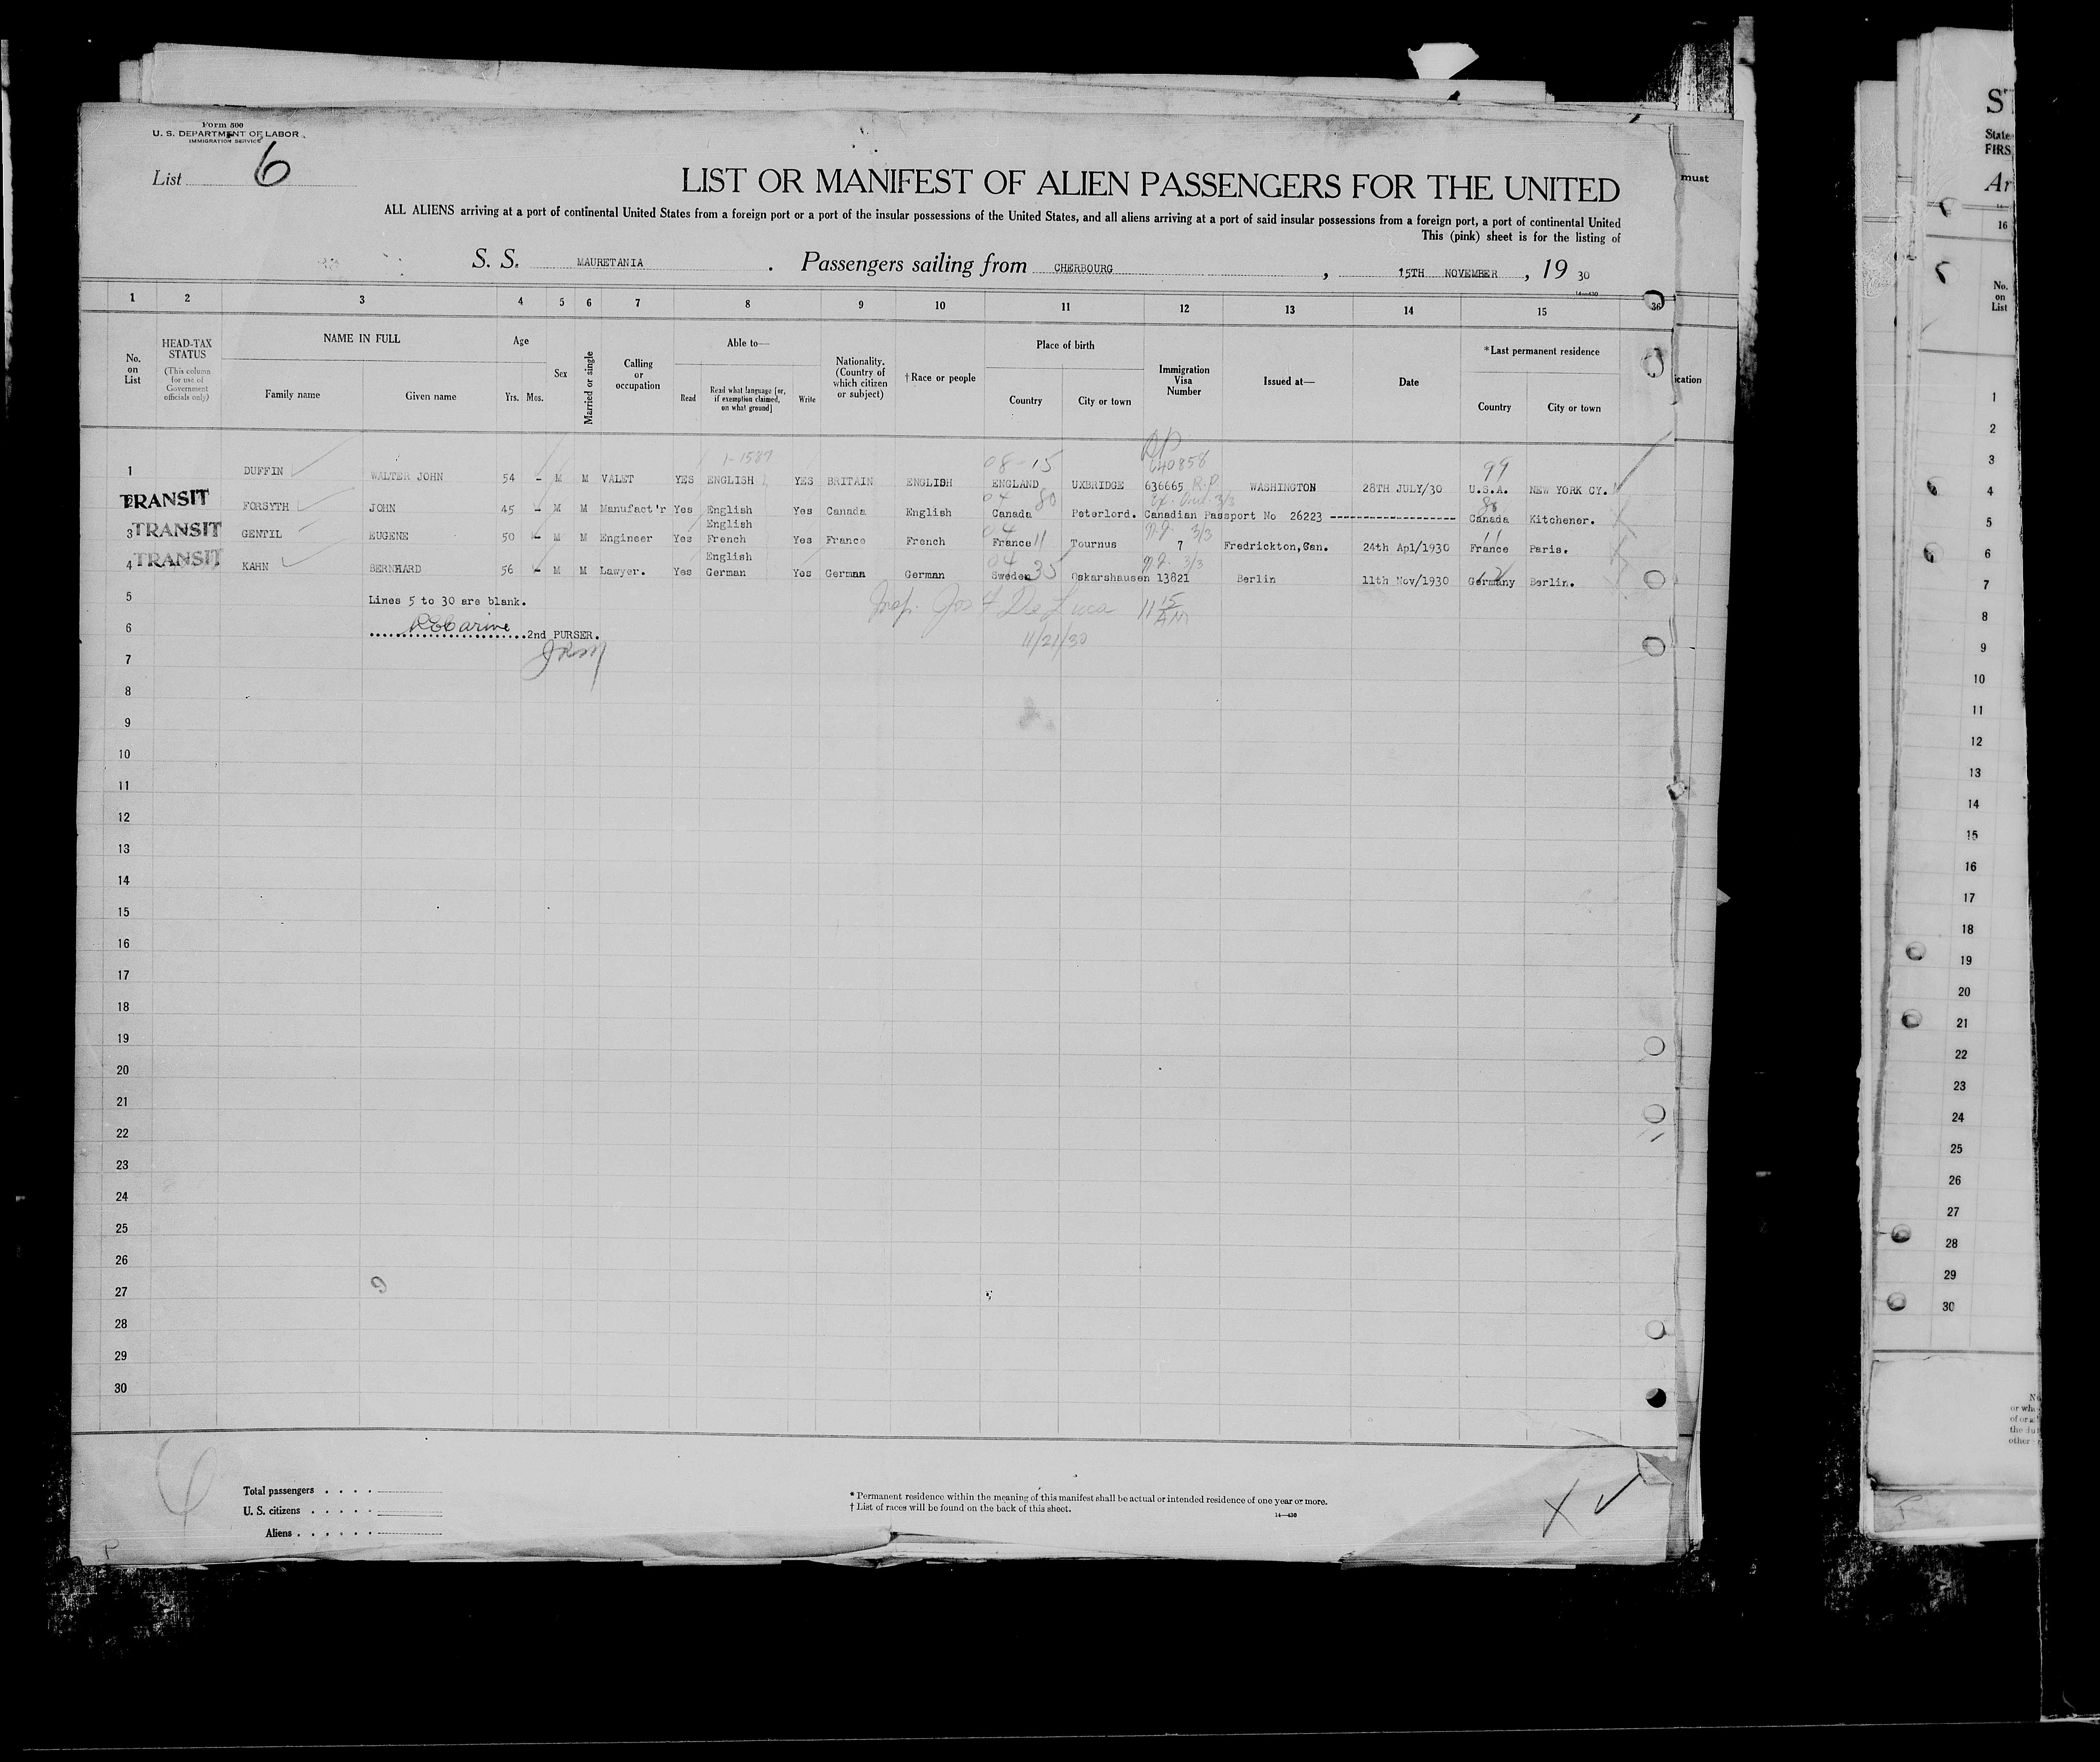 Form 500
U. S. DEPARTMENT OF LABOR
IMMIGRATION SERVICE
List 6
LIST OR MANIFEST OF ALIEN PASSENGERS FOR THE UNITED
ALL ALIENS arriving at a port of continental United States from a foreign port or a port of the insular possessions of the United States, and all aliens arriving at a port of said insular possessions from a foreign port, a port of continental United
This (pink) sheet is for the listing of
S. S. MAURETANIA . Passengers sailing from CHERBOURG , 15TH NOVEMBER , 19 30
14—430
1 2 3 4 5 6 7 8 9 10 11 12 13 14 15 36
No. on List
HEAD-TAX STATUS
(This column for use of Government officials only)
NAME IN FULL
Family name Given name
Age
Yrs. Mos.
Sex
Married or single
Calling or occupation
Able to—
Read
Read what language [or, if exemption claimed, on what ground]
Write
Nationality. (Country of which citizen or subject)
†Race or people
Place of birth
Country City or town
Immigration Visa Number
Issued at—
Date
*Last permanent residence
Country City or town
1-1587 08-15 640858 99
1 DUFFIN WALTER JOHN 54 - M M VALET YES ENGLISH YES BRITAIN ENGLISH ENGLAND UXBRIDGE 636665 R.P. WASHINGTON 28TH JULY/30 U.S.A. NEW YORK CY.
04 80 3/3 80
TRANSIT FORSYTH JOHN 45 - M M Manufact'r Yes English Yes Canada English Canada Peterlord. Canadian Passport No 26223 ------------------ Canada Kitchener.
English 04 3/3 11
3 TRANSIT GENTIL EUGENE 50 - M M Engineer Yes French Yes France French France 11 Tournus 7 Fredrickton,Can. 24th Apl/1930 France Paris.
English 04 3/3
4 TRANSIT KAHN BERNHARD 56 - M M Lawyer. Yes German Yes German German Sweden 35 Oskarshausen 13821 Berlin 11th Nov/1930 Germany Berlin.
5 Lines 5 to 30 are blank. Insp. Jos F De Luca 11 15 AM
6 2nd PURSER. 11/21/30
7
8
9
10
11
12
13
14
15
16
17
18
19
20
21
22
23
24
25
26
27
28
29
30
Total passengers
U. S. citizens
Aliens
* Permanent residence within the meaning of this manifest shall be actual or intended residence of one year or more.
† List of races will be found on the back of this sheet.
14—430
must
ication
State
FIRS
Ar
16
No. on List
1
2
3
4
5
6
7
8
9
10
11
12
13
14
15
16
17
18
19
20
21
22
23
24
25
26
27
28
29
30